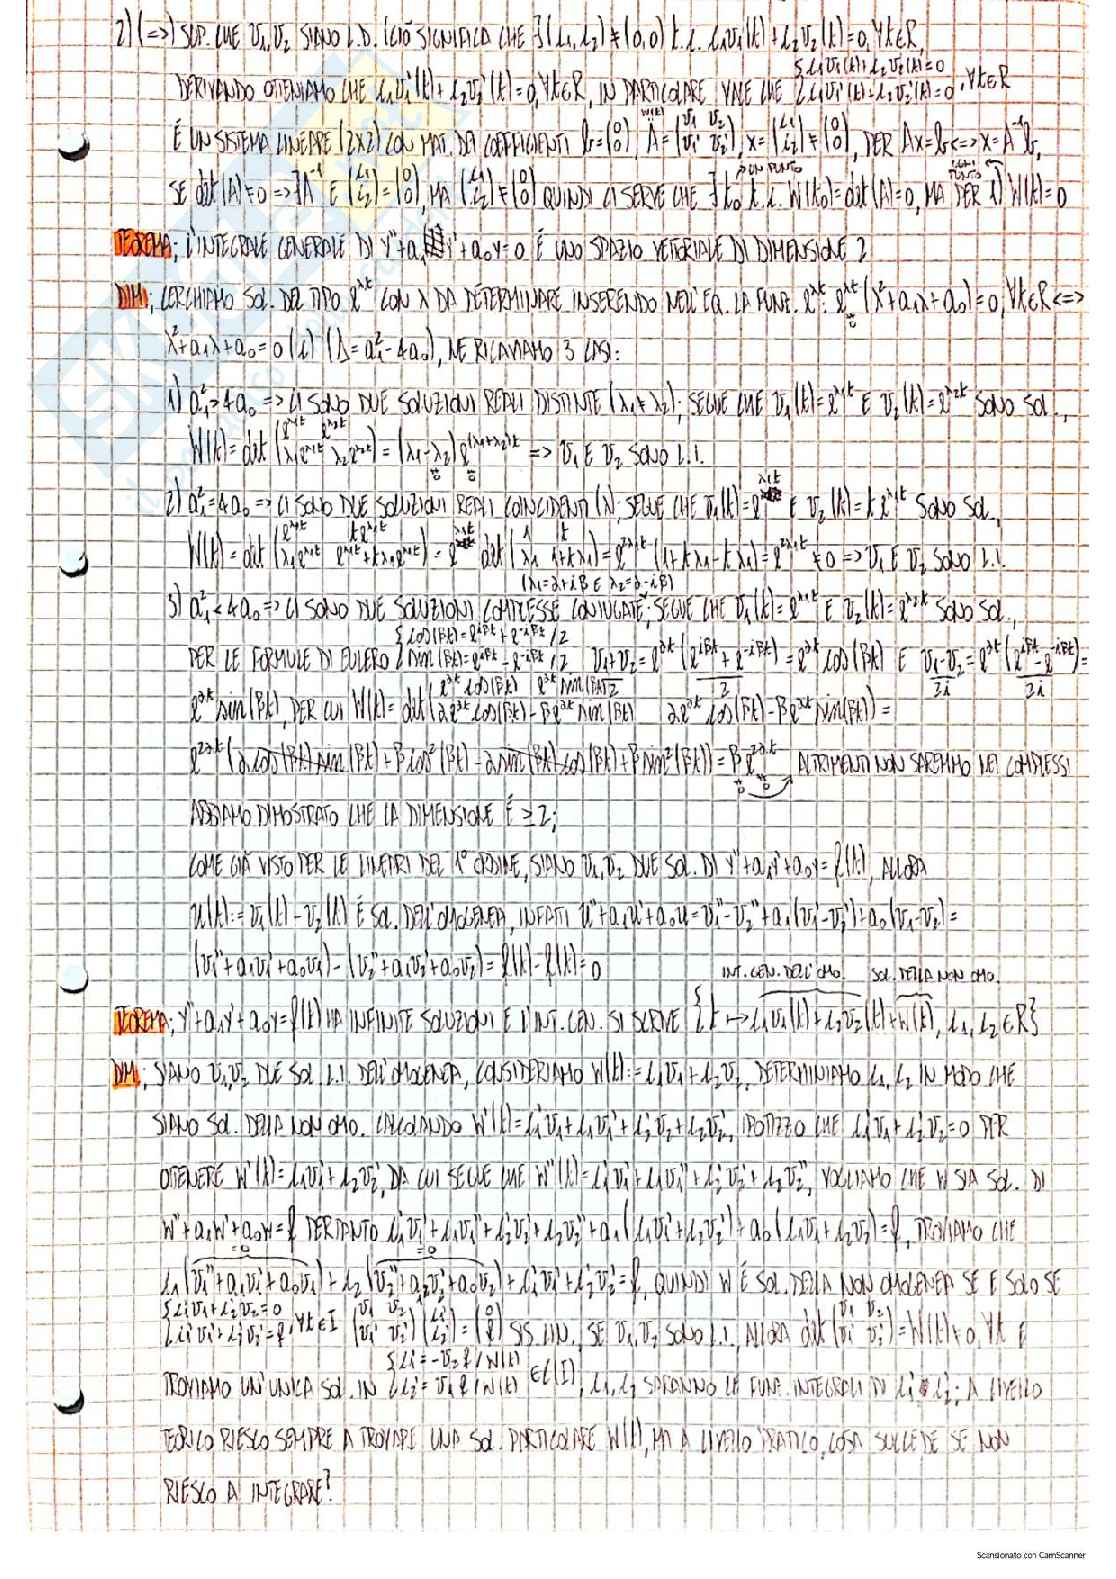 2) (=>) SUP. CHE v₁,v₂ SIANO L.D. (CIÒ SIGNIFICA CHE ∃(c₁,c₂)≠(0,0) t.c. c₁v₁(t)+c₂v₂(t)=0, ∀t∈R,
DERIVANDO OTTENIAMO CHE c₁v₁'(t)+c₂v₂'(t)=0, ∀t∈R, IN PARTICOLARE, VALE CHE {c₁v₁(t)+c₂v₂(t)=0 c₁v₁'(t)+c₂v₂'(t)=0, ∀t∈R
È UN SISTEMA LINEARE (2x2) CON MAT. DEI COEFFICIENTI b=(0 0), A=(v₁ v₂ v₁' v₂'), x=(c₁ c₂)≠(0 0), PER Ax=b<=>x=A⁻¹b,
SE det(A)≠0 => ∃A⁻¹ E (c₁ c₂)=(0 0), MA (c₁ c₂)≠(0 0) QUINDI CI SERVE CHE ∃t₀ t.c. W(t₀)=det(A)=0, MA PER 1) W(t)=0
TEOREMA; L'INTEGRALE GENERALE DI y''+a₁y'+a₀y=0 È UNO SPAZIO VETTORIALE DI DIMENSIONE 2
DIM; CERCHIAMO SOL. DEL TIPO e^λt CON λ DA DETERMINARE INSERENDO NELL'EQ. LA FUNZ. e^λt: e^λt(λ²+a₁λ+a₀)=0, ∀t∈R <=>
λ²+a₁λ+a₀=0 (Δ=a₁²-4a₀), NE RICAVIAMO 3 CASI:
1) a₁²>4a₀ => CI SONO DUE SOLUZIONI REALI DISTINTE (λ₁≠λ₂); SEGUE CHE v₁(t)=e^λ₁t E v₂(t)=e^λ₂t SONO SOL.,
W(t)=det(e^λ₁t e^λ₂t λ₁e^λ₁t λ₂e^λ₂t)=(λ₁-λ₂)e^(λ₁+λ₂)t => v₁ E v₂ SONO L.I.
2) a₁²=4a₀ => CI SONO DUE SOLUZIONI REALI COINCIDENTI (λ); SEGUE CHE v₁(t)=e^λ₁t E v₂(t)=te^λ₁t SONO SOL.,
W(t)=det(e^λ₁t te^λ₁t λ₁e^λ₁t e^λ₁t+tλ₁e^λ₁t)=e^λ₁t det(1 t λ₁ 1+tλ₁)=e^2λ₁t(1+tλ₁-tλ₁)=e^2λ₁t≠0 => v₁ E v₂ SONO L.I.
(λ₁=α+iβ E λ₂=α-iβ)
3) a₁²<4a₀ => CI SONO DUE SOLUZIONI COMPLESSE CONIUGATE; SEGUE CHE v₁(t)=e^λ₁t E v₂(t)=e^λ₂t SONO SOL.,
PER LE FORMULE DI EULERO {cos(βt)=e^iβt+e^-iβt/2 sin(βt)=e^iβt-e^-iβt/2 v₁+v₂/2=e^αt(e^iβt+e^-iβt/2)=e^αt cos(βt) E v₁-v₂/2i=e^αt(e^iβt-e^-iβt/2i)=
e^αt sin(βt), PER CUI W(t)=det(e^αt cos(βt) e^αt sin(βt) αe^αt cos(βt)-βe^αt sin(βt) αe^αt cos(βt)-βe^αt sin(βt))=
e^2αt(αcos(βt)sin(βt)+βcos²(βt)-αsin(βt)cos(βt)+βsin²(βt))=βe^2αt ALTRIMENTI NON SAREMMO NEI COMPLESSI
ABBIAMO DIMOSTRATO CHE LA DIMENSIONE È ≥2;
COME GIÀ VISTO PER LE LINEARI DEL 1° ORDINE, SIANO v₁,v₂ DUE SOL. DI y''+a₁y'+a₀y=f(t), ALLORA
u(t):=v₁(t)-v₂(t) È SOL. DELL'OMOGENEA, INFATTI u''+a₁u'+a₀u=v₁''-v₂''+a₁(v₁'-v₂')+a₀(v₁-v₂)=
(v₁''+a₁v₁'+a₀v₁)-(v₂''+a₁v₂'+a₀v₂)=f(t)-f(t)=0
INT. GEN. DELL'OMO. SOL. DELLA NON OMO.
TEOREMA; y''+a₁y'+a₀y=f(t) HA INFINITE SOLUZIONI E L'INT. GEN. SI SCRIVE {t↦c₁v₁(t)+c₂v₂(t)+w(t), c₁,c₂∈R}
DIM; SIANO v₁,v₂ DUE SOL L.I. DELL'OMOGENEA, CONSIDERIAMO w(t):=c₁v₁+c₂v₂, DETERMINIAMO c₁,c₂ IN MODO CHE
SIANO SOL. DELLA NON OMO. CALCOLANDO w'(t)=c₁'v₁+c₁v₁'+c₂'v₂+c₂v₂', IPOTIZZO CHE c₁'v₁+c₂'v₂=0 PER
OTTENERE w'(t)=c₁v₁'+c₂v₂', DA CUI SEGUE CHE w''(t)=c₁'v₁'+c₁v₁''+c₂'v₂'+c₂v₂'', VOGLIAMO CHE w SIA SOL. DI
w''+a₁w'+a₀w=f PERTANTO c₁'v₁'+c₁v₁''+c₂'v₂'+c₂v₂''+a₁(c₁v₁'+c₂v₂')+a₀(c₁v₁+c₂v₂)=f, TROVIAMO CHE
c₁(v₁''+a₁v₁'+a₀v₁)+c₂(v₂''+a₁v₂'+a₀v₂)+c₁'v₁'+c₂'v₂'=f, QUINDI w È SOL. DELLA NON OMOGENEA SE E SOLO SE
{c₁'v₁+c₂'v₂=0 c₁'v₁'+c₂'v₂'=f, ∀t∈I (v₁ v₂ v₁' v₂')(c₁' c₂')=(0 f) SIS. LIN., SE v₁,v₂ SONO L.I., ALLORA det(v₁ v₂ v₁' v₂')=W(t)≠0, ∀t E
TROVIAMO UN'UNICA SOL. IN {c₁'=-v₂f/W(t) c₂'=v₁f/W(t) ∈C(I), c₁,c₂ SARANNO LE FUNZ. INTEGRALI DI c₁' E c₂'; A LIVELLO
TEORICO RIESCO SEMPRE A TROVARE UNA SOL. PARTICOLARE w(t), MA A LIVELLO PRATICO, COSA SUCCEDE SE NON
RIESCO A INTEGRARE?
Scansionato con CamScanner